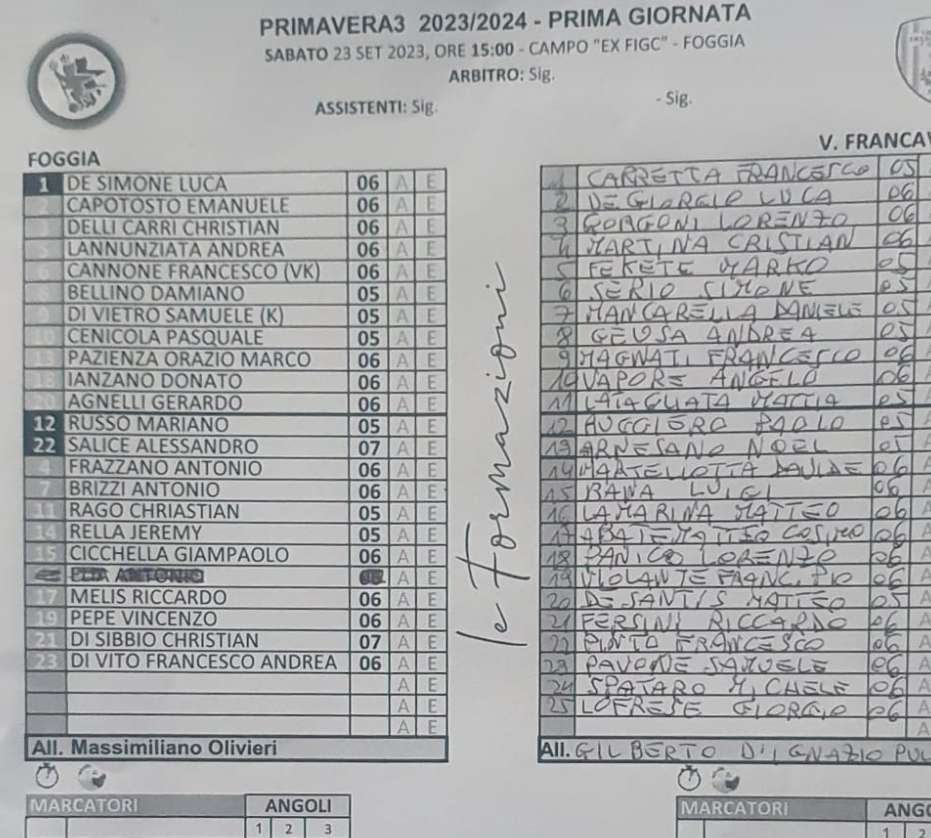 PRIMAVERA3 2023/2024 - PRIMA GIORNATA
SABATO 23 SET 2023, ORE 15:00 - CAMPO "EX FIGC" - FOGGIA
ARBITRO: Sig.
ASSISTENTI: Sig. - Sig.
FOGGIA
1 DE SIMONE LUCA 06 A E
2 CAPOTOSTO EMANUELE 06 A E
3 DELLI CARRI CHRISTIAN 06 A E
5 LANNUNZIATA ANDREA 06 A E
6 CANNONE FRANCESCO (VK) 06 A E
8 BELLINO DAMIANO 05 A E
9 DI VIETRO SAMUELE (K) 05 A E
10 CENICOLA PASQUALE 05 A E
13 PAZIENZA ORAZIO MARCO 06 A E
18 IANZANO DONATO 06 A E
20 AGNELLI GERARDO 06 A E
12 RUSSO MARIANO 05 A E
22 SALICE ALESSANDRO 07 A E
4 FRAZZANO ANTONIO 06 A E
7 BRIZZI ANTONIO 06 A E
11 RAGO CHRIASTIAN 05 A E
14 RELLA JEREMY 05 A E
15 CICCHELLA GIAMPAOLO 06 A E
ELIA ANTONIO A E
17 MELIS RICCARDO 06 A E
19 PEPE VINCENZO 06 A E
21 DI SIBBIO CHRISTIAN 07 A E
23 DI VITO FRANCESCO ANDREA 06 A E
A E
A E
A E
All. Massimiliano Olivieri
MARCATORI ANGOLI
1 2 3
le Formazioni
V. FRANCAV
1 CARRETTA FRANCESCO 05
2 DE GIORGIO LUCA 06
3 GORGONI LORENZO 06
4 MARTINA CRISTIAN 06
5 FEKETE MARKO 05
6 SERIO SIMONE 05
7 MANCARELLA DANIELE 05
8 GEUSA ANDREA 05
9 MAGNATI FRANCESCO 06
10 VAPORE ANGELO 06
11 LAIAGUATA MATTIA 05
12 RUGGIERO PAOLO 05
13 ARNESANO NOEL 05
14 MARTELLOTTA DAVIDE 06
15 BAVA LUIGI 06
16 LAMARINA MATTEO 06
17 ABATEMATTEO COSIMO 06
18 PANICO LORENZO 06
19 VIOLANTE 06
20 DE SANTIS MATTEO 05
21 FERSINI RICCARDO 06
22 PINTO FRANCESCO 06
23 PAVONE SAMUELE 06
24 SPATARO MICHELE 06
25 LOFRESE GIORGIO 06
All. GILBERTO D'IGNAZIO PUL
MARCATORI ANGO
1 2